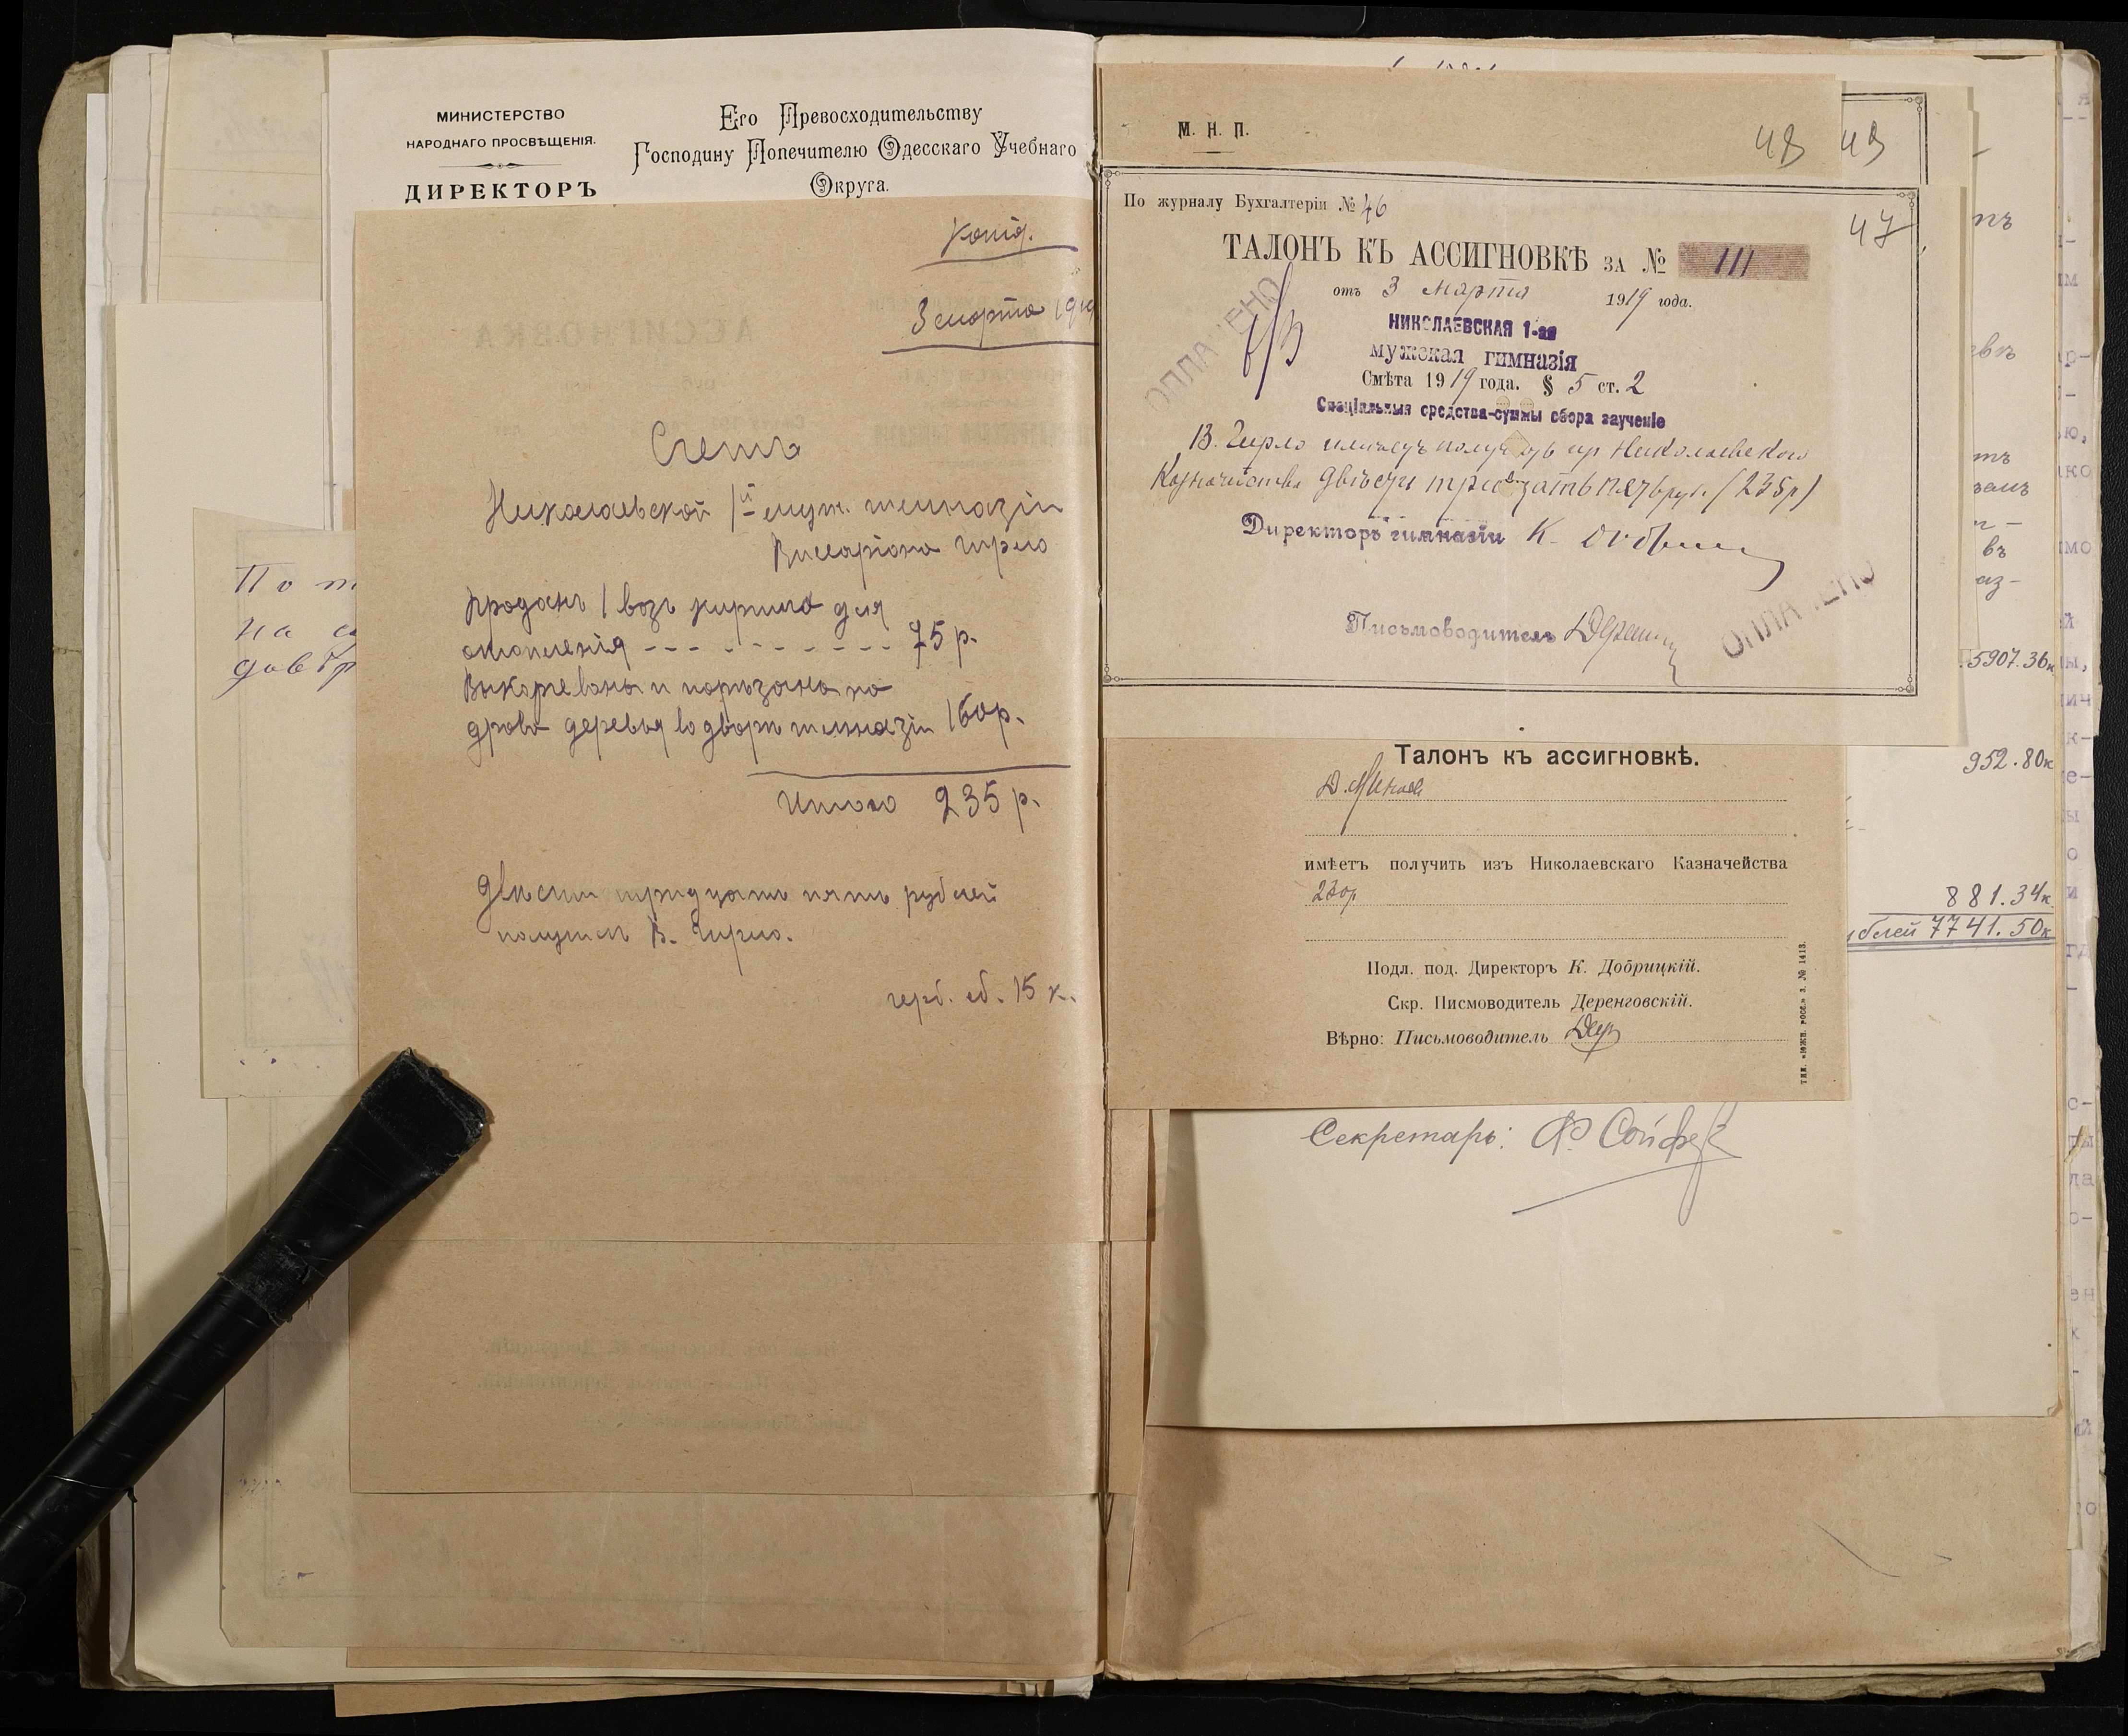 МИНИСТЕРСТВО
НАРОДНАГО ПРОСВѢЩЕНІЯ.
ДИРЕКТОРЪ
Его Превосходительству
Господину Попечителю Одесскаго Учебнаго
Округа.
Копія.
3 марта 1919
Счетъ
Николаевской 1й муж. гимназіи
Виссаріона Чирло
Проданъ 1 возъ кирпича для
отопленія - - - - - - - - - - 75 р.
Выкорчеваны и порѣзаны на
дрова деревья во дворѣ гимназіи 160 р.
Итого 235 р.
Двѣсти тридцать пять рублей
получилъ В. Чирло.
герб. сб. 15 к.
По
на
М. Н. П.
48
49
По журналу Бухгалтеріи № 46
47
ТАЛОНЪ КЪ АССИГНОВКѢ ЗА № 111
отъ 3 марта 1919 года.
ОПЛАЧЕНО
НИКОЛАЕВСКАЯ 1-ая
мужская гимназія
Смѣта 1919 года. § 5 ст. 2
Спеціальныя средства-суммы сбора за ученіе
В. Чирло имѣетъ получить изъ Николаевскаго
Казначейства двѣсти тридцать пять руб. (235 р)
Директоръ гимназіи К.
Письмоводитель
ОПЛАЧЕНО
Талонъ къ ассигновкѣ.
имѣетъ получить изъ Николаевскаго Казначейства
230р
Подл. под. Директоръ К. Добрицкій.
Скр. Писмоводитель Деренговскій.
Вѣрно: Письмоводитель
тип. «ЮЖН. РОСС.» З. № 1413.
Секретарь: Ф. Сойфер
5907.36к
952.80к
881.34к
рублей 7741.50к